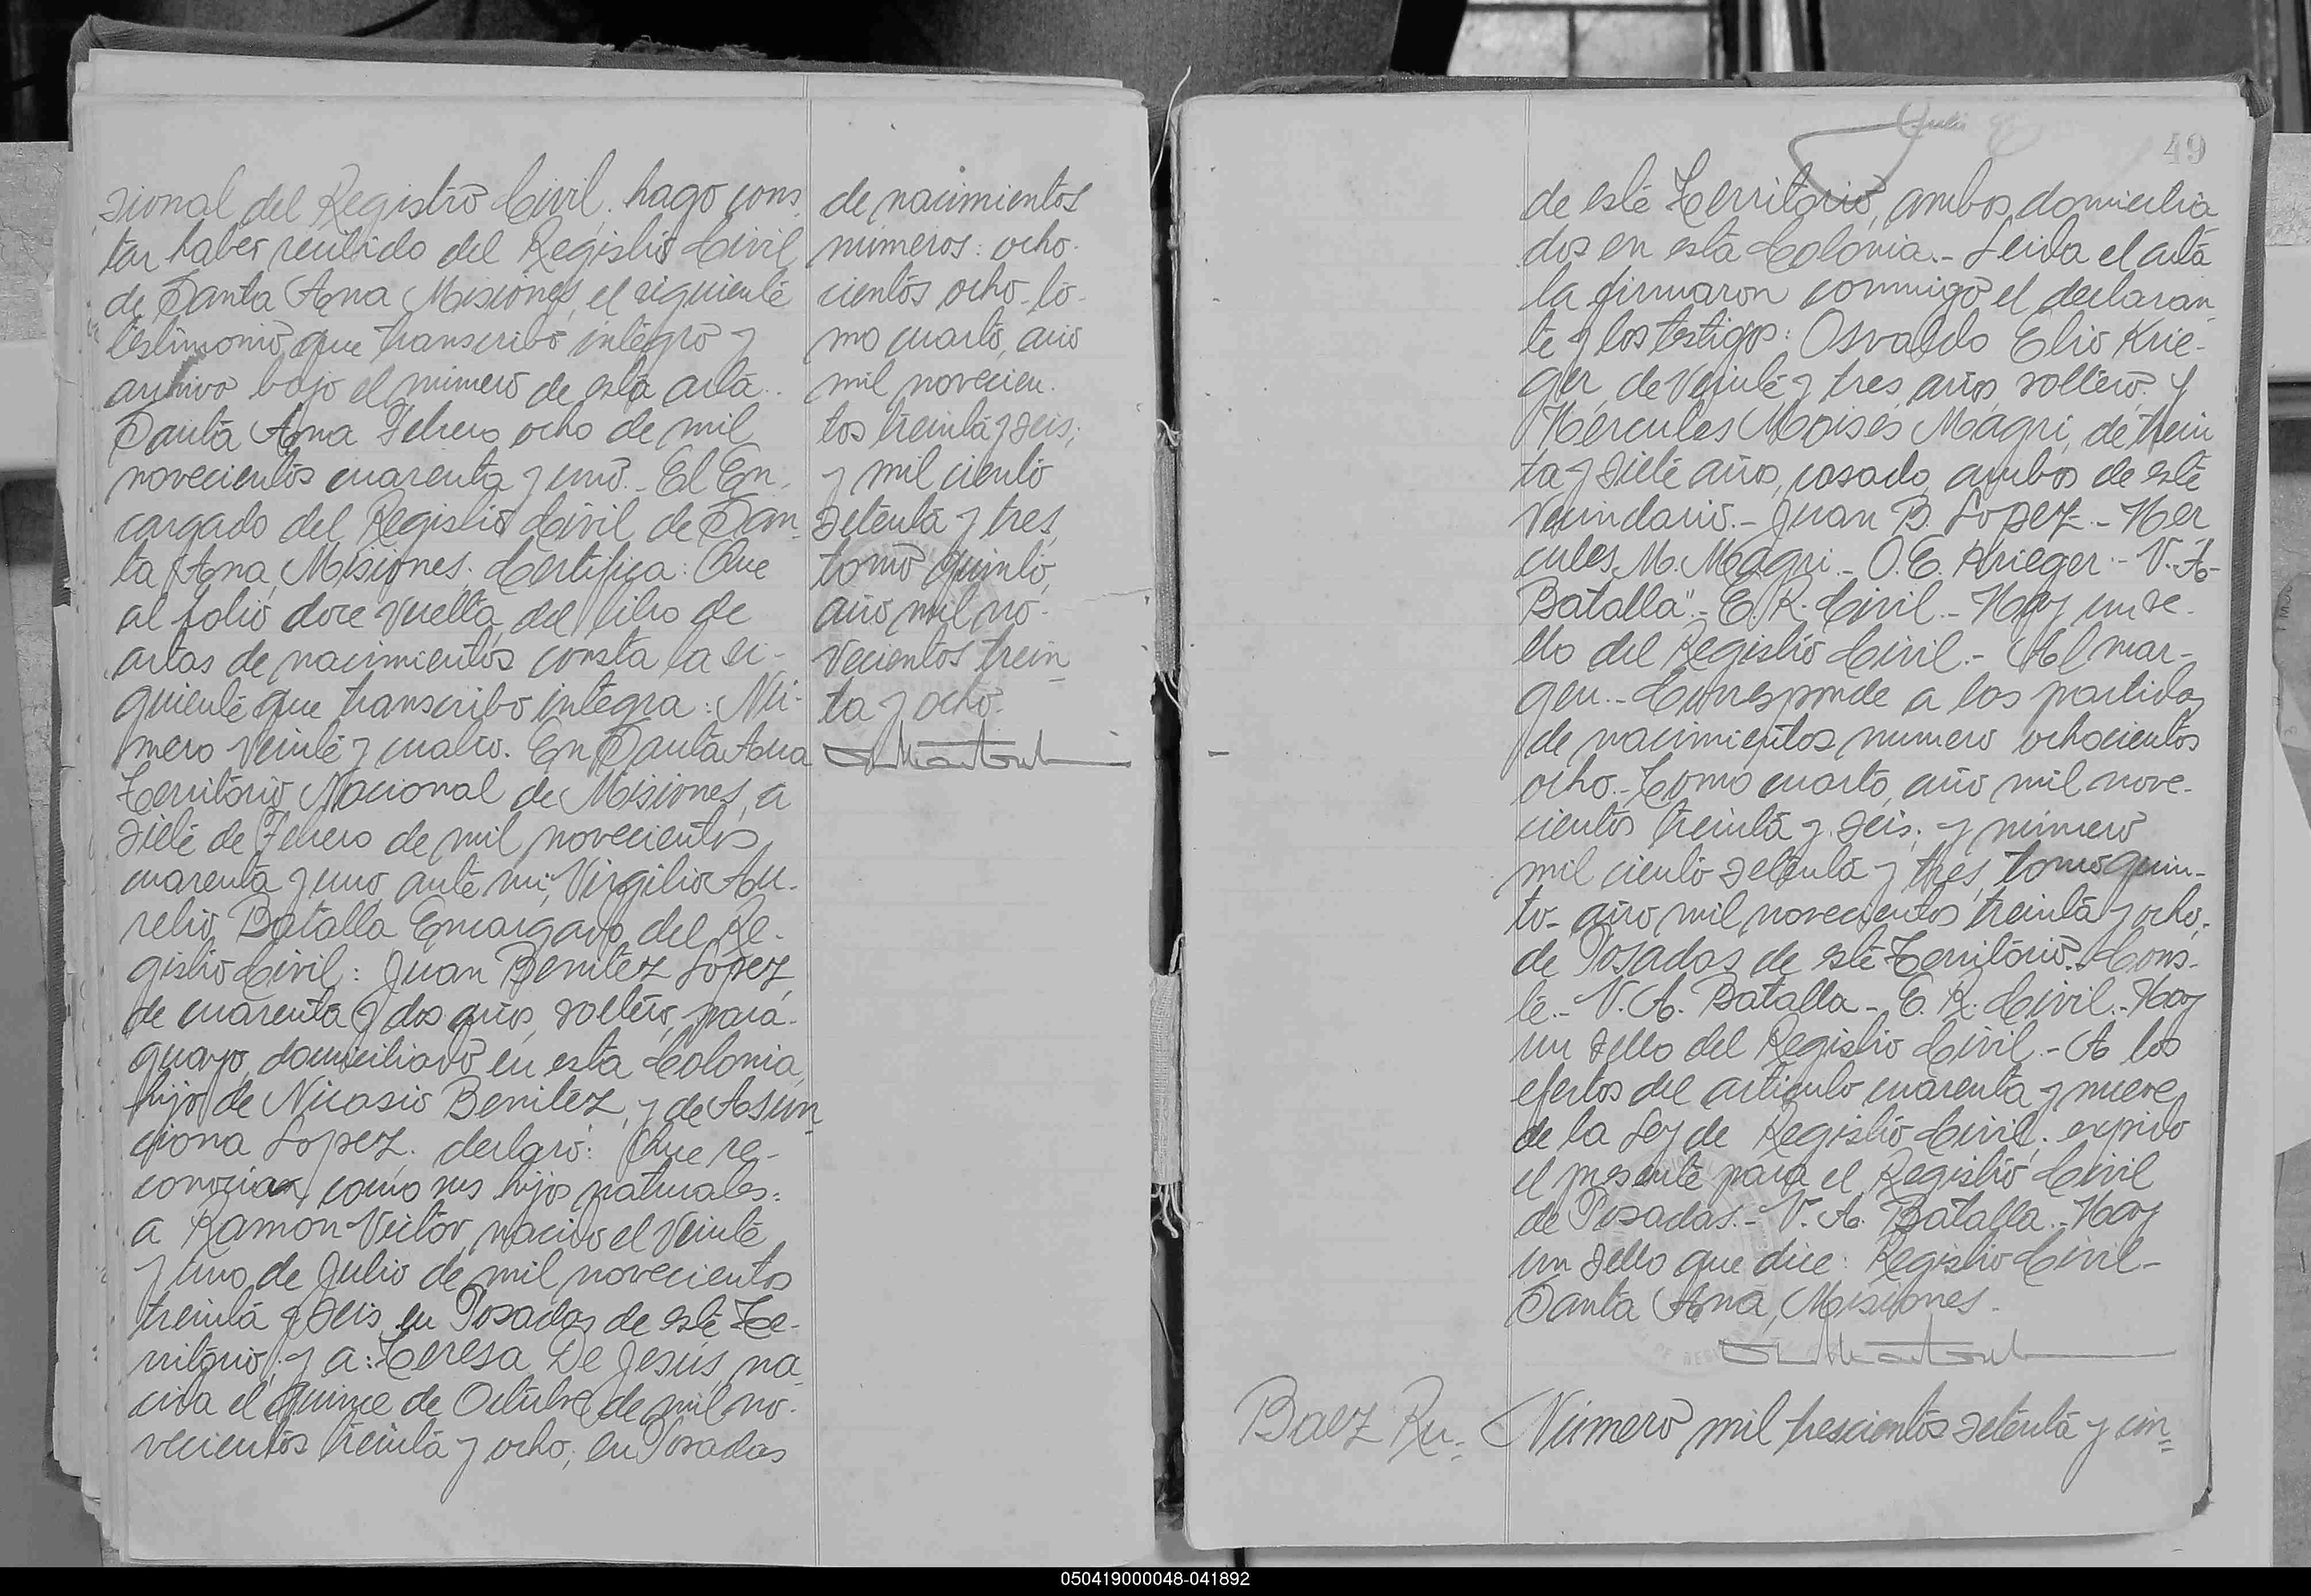 sional del Registro Civil. hago cons
tar haber recibido del Registro Civil
de Santa Ana Misiones, el siguiente
testimonio que transcribo integro y
archivo bajo el número de esta acta.
Santa Ana Febrero ocho de mil
novecientos cuarenta y uno.- El En-
cargado del Registro Civil de San-
ta Ana, Misiones. Certifica: Que
al folio doce vuelta del libro de
actas de nacimientos consta la si-
guiente que transcribo integra: Nú-
mero veinte y cuatro. En Santa Ana
Territorio Nacional de Misiones, a
siete de Febrero de mil novecientos
cuarenta y uno, ante mi, Virgilio Au-
relio Batalla Encargado del Re-
gistro Civil: Juan Benitez López,
de cuarenta y dos años, soltero, para-
guayo, domiciliado en esta Colonia,
hijo de Nicasio Benitez, y de Asun-
ciona Lopez, declaró: Que re-
conocian como sus hijos naturales:
a Ramon Victor, nacido el veinte
y uno de Julio de mil novecientos
treinta y seis en Posadas de este Te-
rritorio; y a: Teresa De Jesús, na-
cida el quince de Octubre de mil no-
vecientos treinta y ocho; en Posadas
de nacimientos
números: ocho-
cientos ocho- to-
mo cuarto, año
mil novecien-
tos treinta y seis;
y mil ciento
setenta y tres,
tomo quinto,
año mil no-
vecientos trein-
ta y ocho.
49
de este Territorio, ambos domicilia
dos en esta Colonia.- Leida el acta
la firmaron conmigo el declaran-
te y los testigos: Osvaldo Elio Krie-
ger, de veinte y tres años, soltero, y
Hercules Moisés Magri, de trein
ta y siete años, casado, ambos de este
vecindario.- Juan B. Lopez.- Her
cules M. Magri.- O. E. Krieger.- V. A.
Batalla".- E. R. Civil.- Hay un se-
llo del Registro Civil.- Al mar-
gen.- Corresponde a las partidas
de nacimientos numero ochocientos
ocho.- Tomo cuarto, año mil nove-
cientos treinta y seis; y número
mil ciento setenta y tres, tomo quin-
to- año mil novecientos treinta y ocho,-
de Posadas de este Territorio.- Cons-
te.- V. A. Batalla- E. R. Civil.- Hay
un sello del Registro Civil.- A los
efectos del articulo cuarenta y nueve
de la Ley de Registro Civil, expido
el presente para el Registro Civil
de Posadas.- V. A. Batalla.- Hay
un sello que dice: Registro Civil-
Santa Ana, Misiones-
Baez Ru=
Número mil trescientos setenta y cin=
050419000048-041892